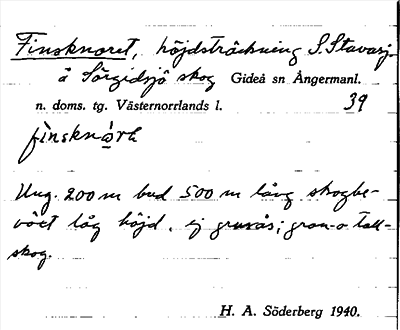 Finsknoret, höjdsträckning S. Stavarsj.
å Sörgidsjö skog Gideå sn Ångermanl.
n. doms. tg. Västernorrlands l. 39
Ung. 200 m bred 500 m lång skogbe-
växt låg höjd, ej grusås; gran- o. tall-
skog.
H. A. Söderberg 1940.